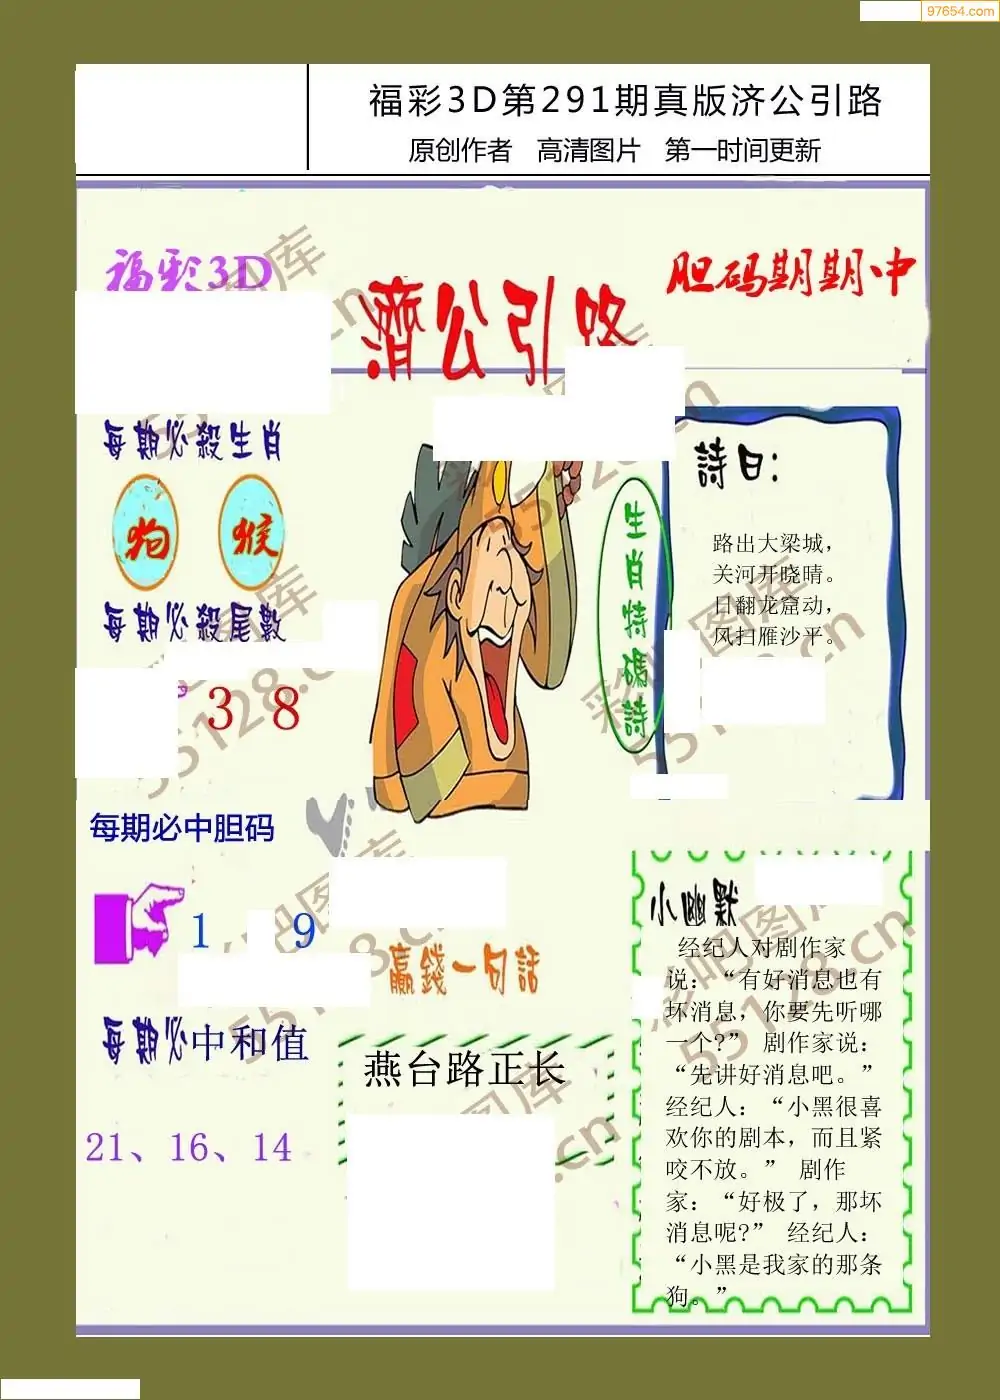 97654.com
福彩3D第291期真版济公引路
原创作者 高清图片 第一时间更新
福彩3D
濟公引路
胆码期期中
每期必殺生肖
狗 猴
每期必殺尾數
3 8
每期必中胆码
1 9
每期必中和值
21、16、14
生肖特碼詩
詩曰:
路出大梁城，
关河开晓晴。
日翻龙窟动，
风扫雁沙平。
贏錢一句話
燕台路正长
小幽默
经纪人对剧作家
说：“有好消息也有
坏消息，你要先听哪
一个?” 剧作家说：
“先讲好消息吧。”
经纪人：“小黑很喜
欢你的剧本，而且紧
咬不放。” 剧作
家：“好极了，那坏
消息呢?” 经纪人：
“小黑是我家的那条
狗。”
彩吧图库
55128.cn